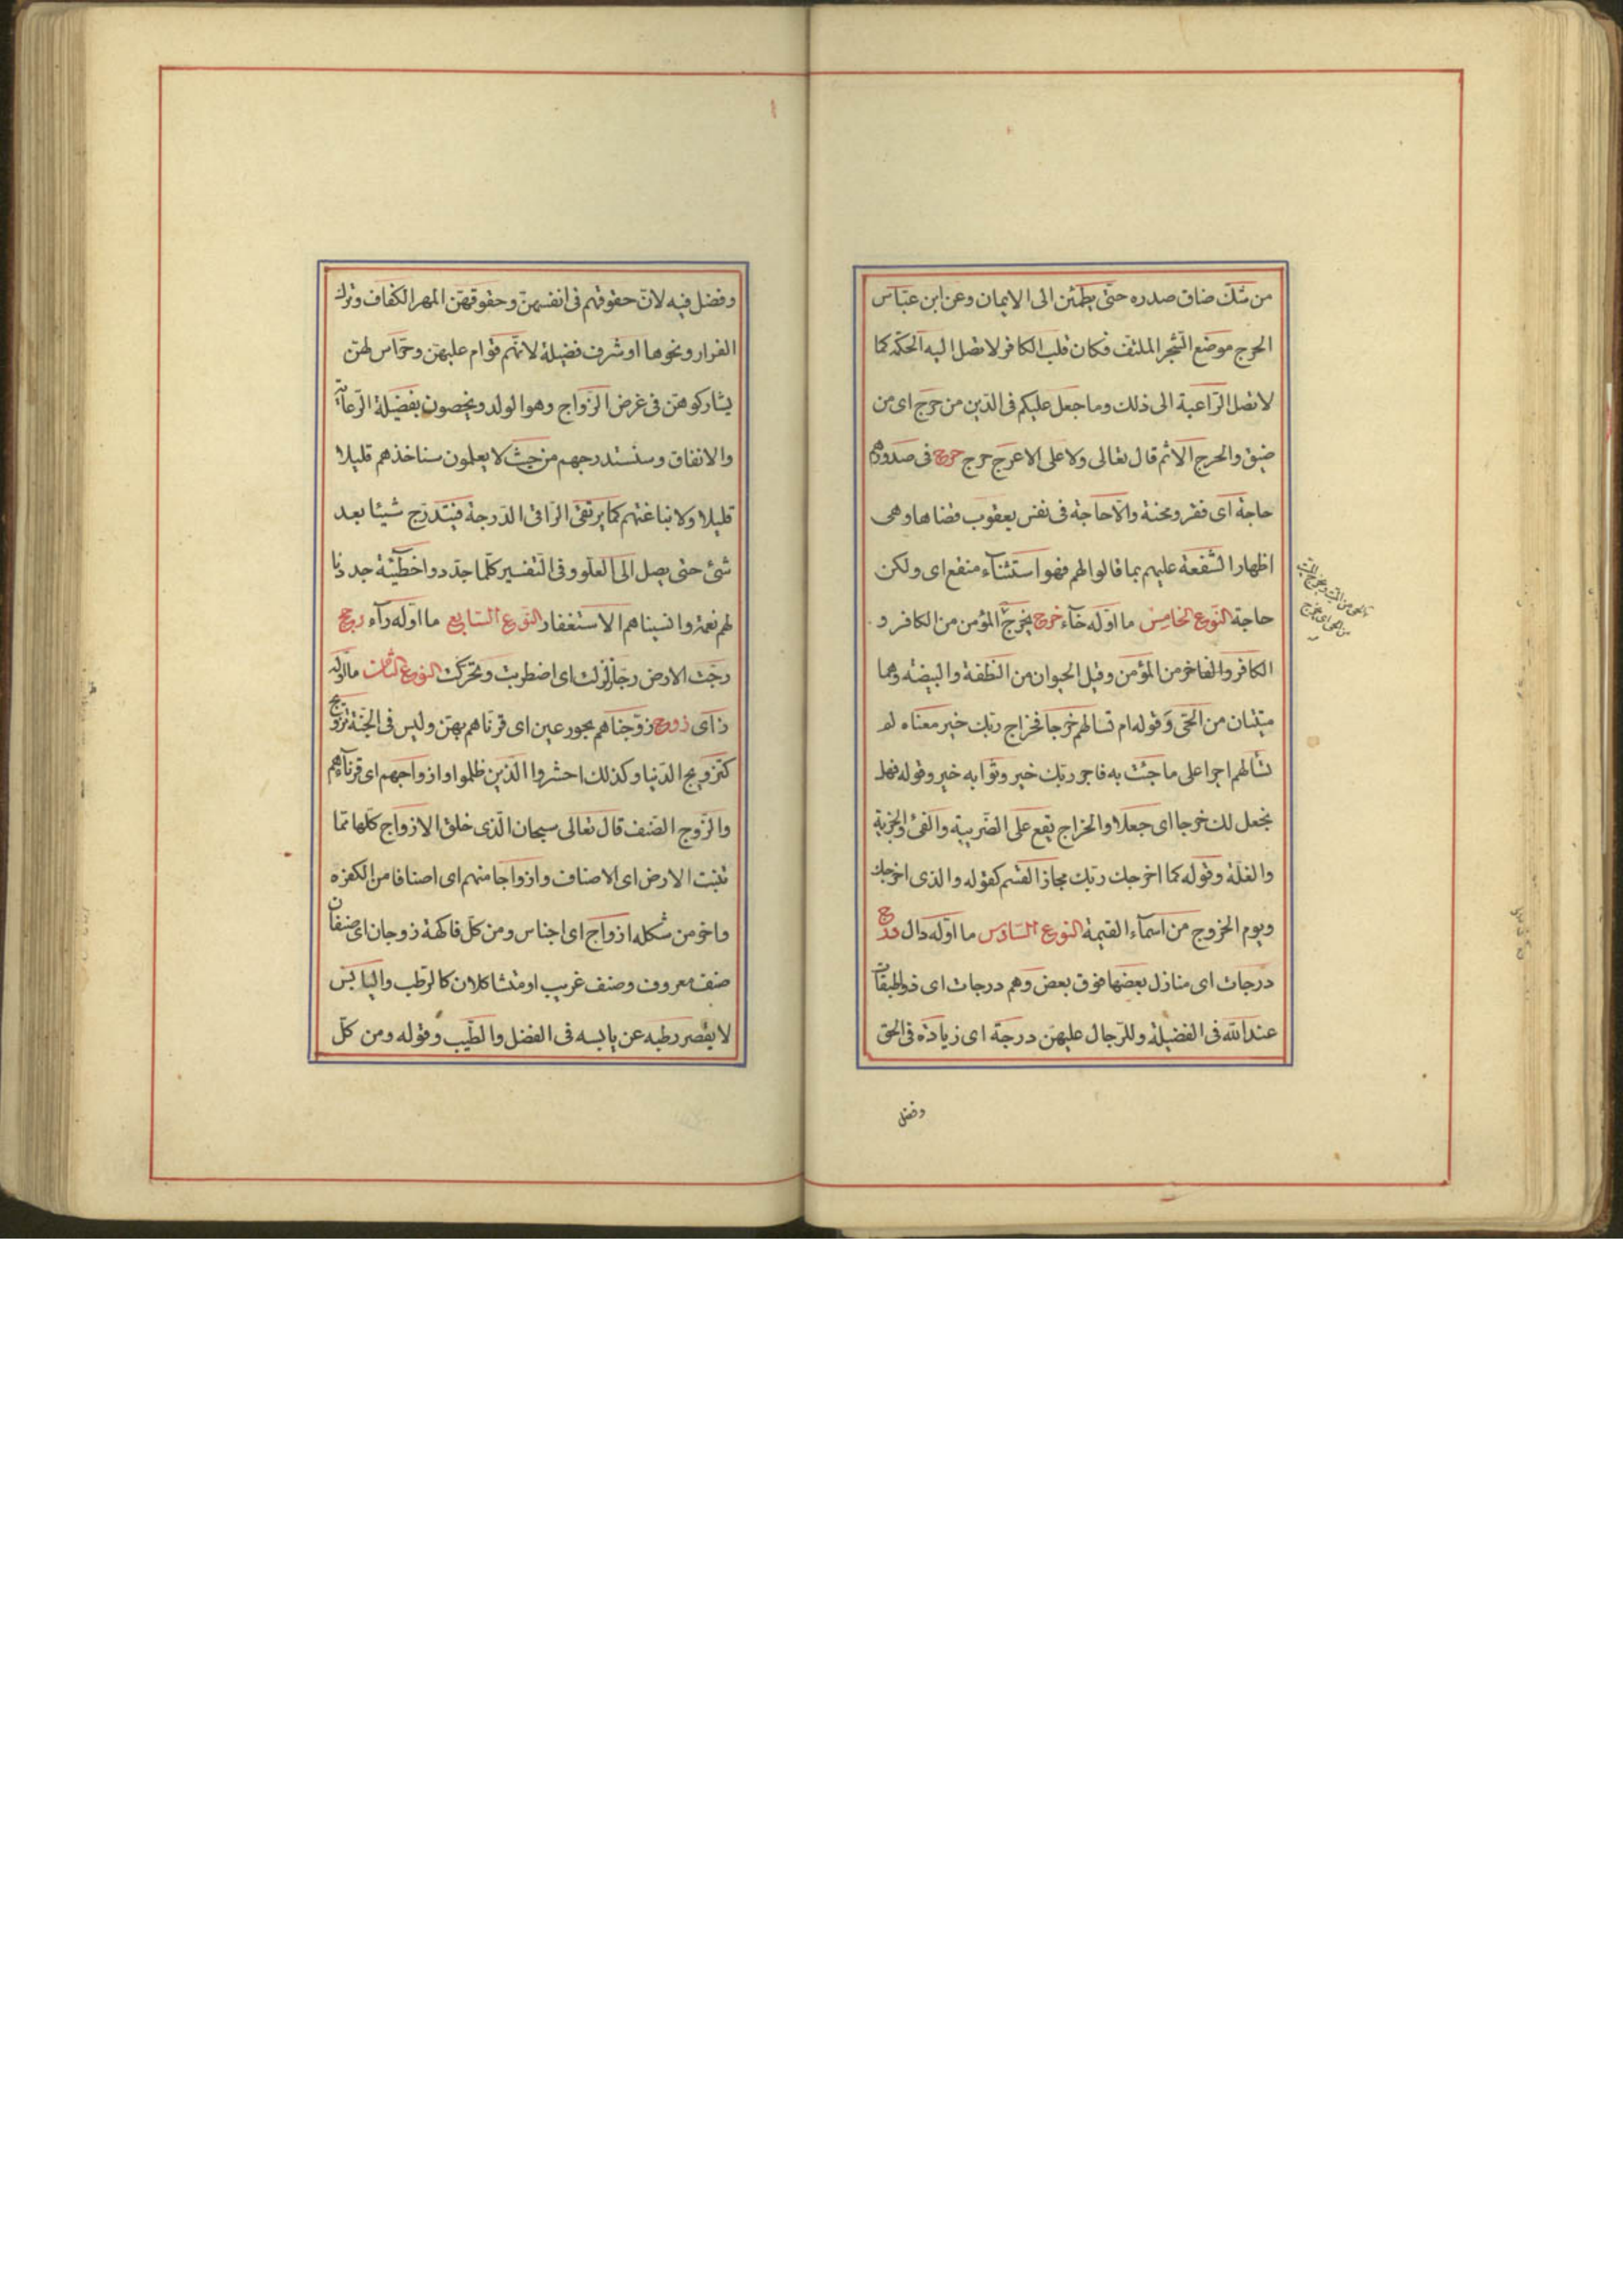 من شك ضاق صدره حتى يطمئن الى الايمان وعن ابن عباس
الحرج موضع الشجر الملتف فكان قلب الكافر لا تصل اليه الحكمة كما
لا تصل الراعية الى ذلك وما جعل عليكم فى الدين من حرج اى من
ضيق والحرج الاثم قال تعالى ولا على الاعرج حرج حوج فى صدورهم
حاجة اى فقر ومحنة والا حاجة فى نفس يعقوب قضاها وهى
اظهار الشفعة عليهم بما قالوا لهم فهو استثناء منقع اى ولكن
حاجة النوع الخامس ما اوله خآء خرج يخرج المؤمن من الكافر و
الكافر والفاخر من المؤمن وقيل الحيوان من النطفة والبيضة وهما
ميتتان من الحى وقوله ام تسالهم خرجا فخراج ربك خير معناه لم
تسألهم اجرا على ما جئت به فاجر ربك خير وثوابه خير وقوله فهل
نجعل لك خرجا اى جعلا والخراج يقع على الضريبة والفئ والجزية
والغلة وقوله كما اخرجك ربك مجاز القسم كقوله والذى اخرجك
ويوم الخروج من اسمآء القيمة النوع السادس ما اوله دال درج
درجات اى منازل بعضها فوق بعض وهم درجات اى ذو طبقات
عند الله فى الفضيلة وللرجال عليهن درجة اى زيادة فى الحق
وفضل
وفضل فيه لان حقوقهم فى انفسهن وحقوقهن المهر الكفاف وترك
الفرار ونحوها او شرف فضيلة لانهم قوام عليهن وحراس لهن
يشاركوهن فى غرض الزواج وهو الولد ويخصون بفضيلة الرعاية
والانفاق وسنستدرجهم من حيث لا يعلمون سناخذهم قليلا
قليلا ولا نباغتهم كما يرتقى الراقى الدرجة فيتدرج شيئا بعد
شئ حتى يصل الى العلو وفى التفسير كلما جددوا خطيئة جددنا
لهم نعمة وانسيناهم الاستغفار النوع السابع ما اوله رآء رجج
رجت الارض رجا زلزلت اى اضطربت وتحركت النوع الثامن ما اوله
زاى زوج زوجناهم بحور عين اى قرناهم بهن وليس فى الجنة تزويج
كتزويج الدنيا وكذلك احشروا الذين ظلموا وازواجهم اى قرنآءهم
والزوج الصنف قال تعالى سبحان الذى خلق الازواج كلها مما
تنبت الارض اى الاصناف وازواجا منهم اى اصنافا من الكفرة
واخر من شكله ازواج اى اجناس ومن كل فاكهة زوجان اى صنفان
صنف معروف وصنف غريب او متشاكلان كالرطب واليابس
لا يقصر رطبه عن يابسه فى الفضل والطيب وقوله ومن كل